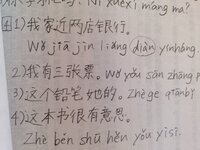 Nǐ xuéxí máng ma?
1)我家近两店银行。
Wǒ jiā jìn liǎng diàn yínháng.
2)我有三张票。Wǒ yǒu sān zhāng
3)这个铅笔她的。Zhège qiānbǐ
4)这本书很有意思。
Zhè běn shū hěn yǒu yìsi.